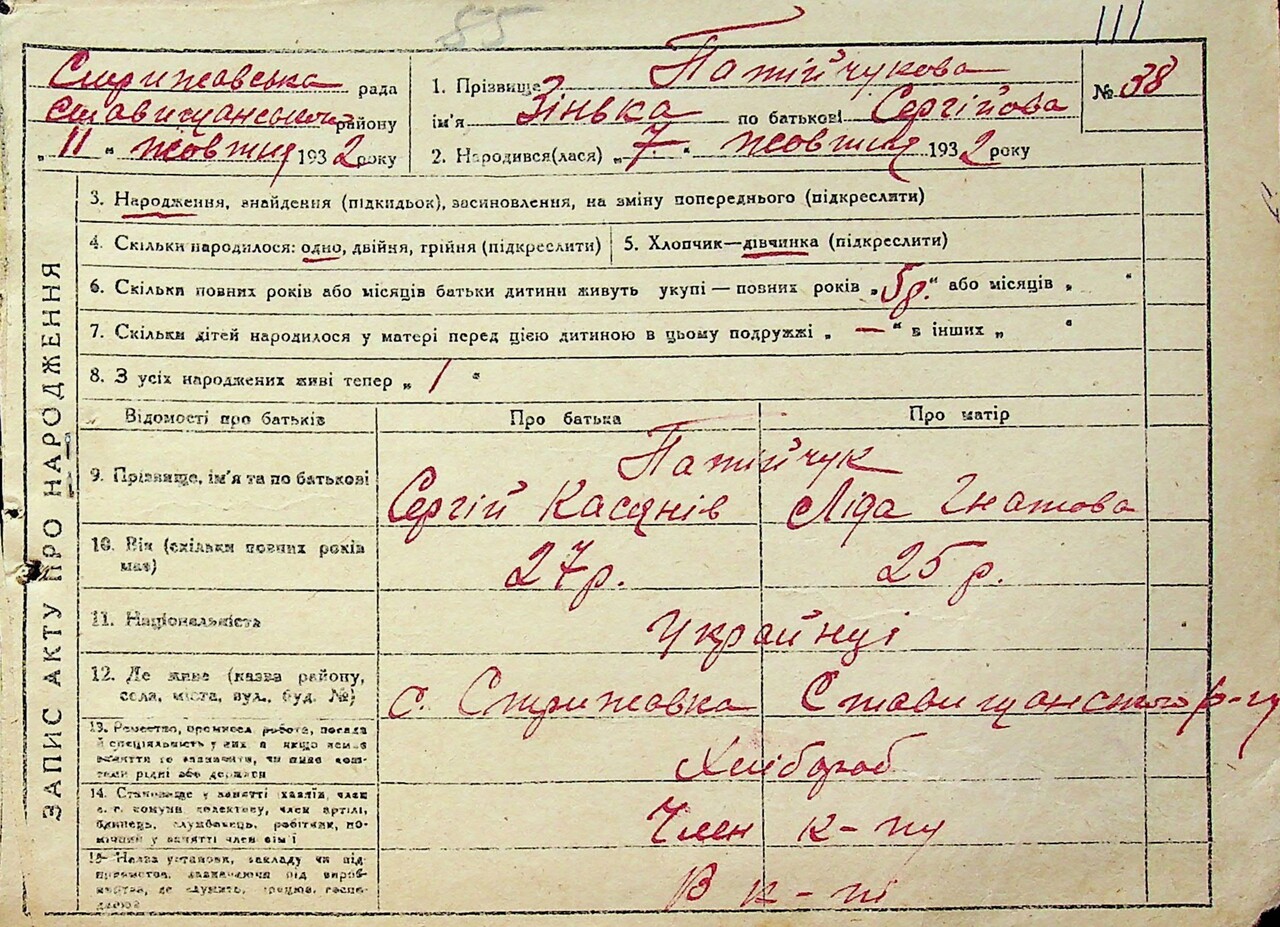 55
111
Стрижавська рада
Ставищанського району
„ 11 “ жовтня 1932 року
1. Прізвище Патійчукова
ім'я Зінька по батькові Сергійова
2. Народився(лася) „ 7. “ жовтня 1932 року
№ 38
ЗАПИС АКТУ ПРО НАРОДЖЕННЯ
3. Народження, знайдення (підкидьок), засиновлення, на зміну попереднього (підкреслити)
4. Скільки народилося: одно, двійня, трійня (підкреслити)
5. Хлопчик—дівчинка (підкреслити)
6. Скільки повних років або місяців батьки дитини живуть укупі — повних років „ 5р. “ або місяців „ “
7. Скільки дітей народилося у матері перед цією дитиною в цьому подружжі „ — “ в інших „ “
8. З усіх народжених живі тепер „ 1 “
Відомості про батьків
Про батька
Про матір
9. Прізвище, ім'я та по батькові
Патійчук
Сергій Касянів
Ліда Гнатова
10. Вік (скільки повних років
має)
27р.
25 р.
11. Національність
Українці
12. Де живе (назва району,
села, міста, вул., буд. №)
с. Стрижавка Ставищанського р-ну
13. Ремество, промисел, робота, посада
й спеціяльність у них, а якщо немає
заняття то зазначити, чи має кош-
ти рідні або держави
Хлібороб
14. Становище у занятті хазяїн, член
с. г. комуни, колективу, член артілі,
одинець, службовець, робітник, по-
мічний у занятті член сім'ї
Член к-пу
15. Назва установи, закладу чи під-
приємства, зазначаючи рід вироб-
ництва, де служить, працює,
В к-пі